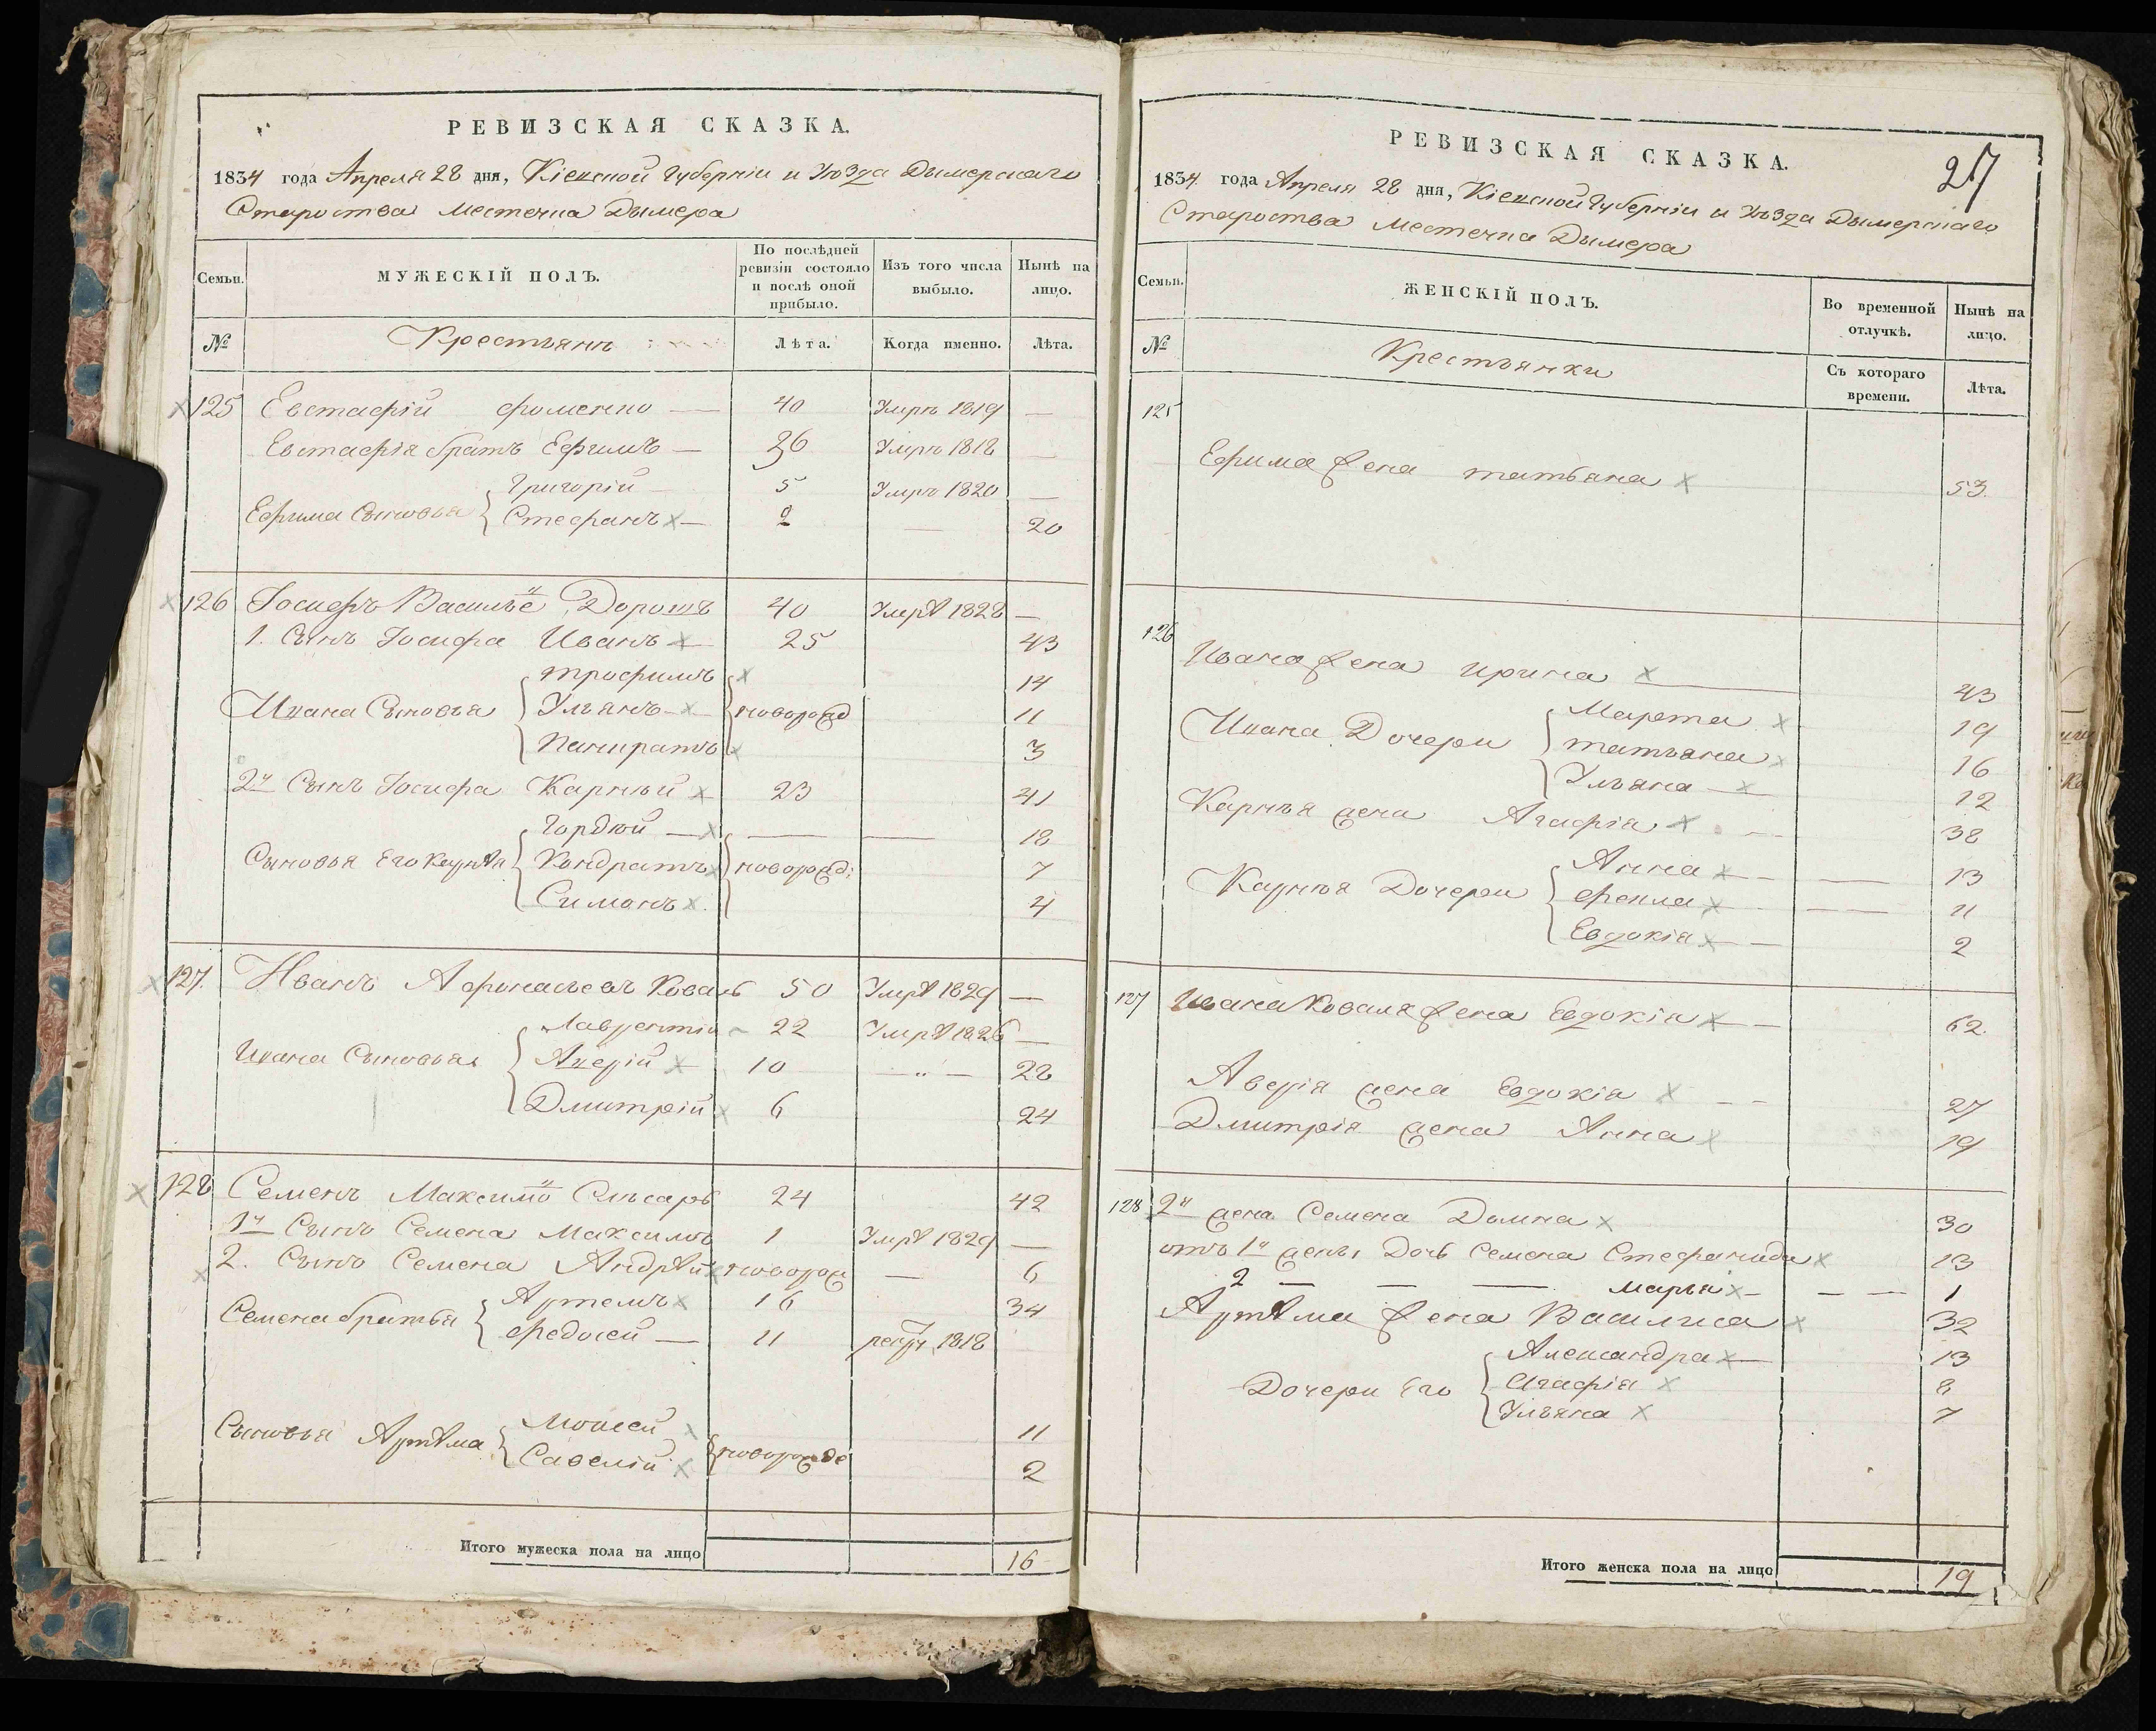 РЕВИЗСКАЯ СКАЗКА.
1834 года Апреля 28 дня, Кіевской Губерніи и Уѣзда Дымерскаго
Староства Местечка Дымера
Семьи. МУЖЕСКІЙ ПОЛЪ. По послѣдней ревизіи состояло и послѣ оной прибыло. Изъ того числа выбыло. Нынѣ на лицо.
№ Крестьянъ Лѣта. Когда именно. Лѣта.
125 Евстафій Фоменко — 40 Умръ 1819 —
Евстафія братъ Ефимъ — 36 Умръ 1818 —
Григорій — 5 Умръ 1820 —
Ефима Сыновья Стефанъ — 2 — 20
126 Іосифъ Василье Дорошъ 40 Умрѣ 1828 —
1. Сынъ Іосифа Иванъ 25 43
Трофимъ 14
Ивана Сыновья Ульянъ новорожд 11
Панкратъ 3
2й Сынъ Іосифа Карнѣй 23 41
Гордѣй — — — 18
Сыновья Его Карнѣя Кондратъ новорожд: 7
Симонъ 4
127. Иванъ Афонасьевъ Коваль 50 Умрѣ 1829 —
Лаврентій 22 Умрѣ 1826 —
Ивана Сыновья Аверій 10 — " — 28
Дмитрій 6 24
128 Семенъ Максимо Слѣсарь 24 42
1й Сынъ Семена Максимъ 1 Умрѣ 1829 —
2. Сынъ Семена Андрѣй новорож — 6
Артемъ 16 34
Семена братья Федосей — 11 рекру 1818
Моисей 11
Сыновья Артѣма Савелій новорожде 2
Итого мужеска пола на лицо 16
РЕВИЗСКАЯ СКАЗКА. 27
1834 года Апреля 28 дня, Кіевской Губерніи и Уѣзда Дымерскаго
Староства Местечка Дымера
Семьи. ЖЕНСКІЙ ПОЛЪ. Во временной отлучкѣ. Нынѣ на лицо.
№ Крестьянки Съ котораго времени. Лѣта.
125
Ефима жена Татьяна 53.
126
Ивана жена Ирина 43
Марфа 19
Ивана Дочери Татьяна 16
Ульяна 12
Карнѣя жена Агафія 38
Анна 13
Карнѣя Дочери Фекла 11
Евдокія 2
127 Ивана Коваля жена Евдокія 62.
Аверія жена Евдокія 27
Дмитрія жена Анна 19
128 2я жена Семена Домна 30
отъ 1й жены Дочь Семена Стефанида 13
2 — — — Марья — 1
Артѣма жена Василиса 32
Александра 13
Дочери Его Агафія 8
Ульяна 7
Итого женска пола на лицо 19